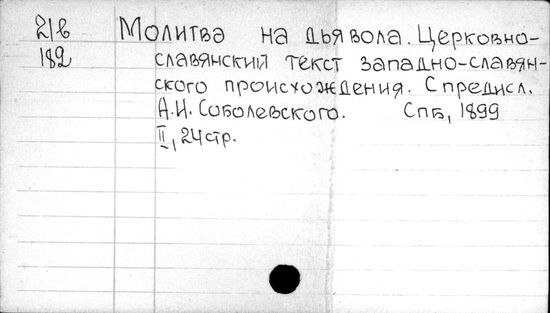 21в Молитва на дьявола. Церковно-
182 славянский текст западно-славян-
ского происхождения. С предисл.
А.И. Соболевского. СПБ, 1899
II, 24 стр.